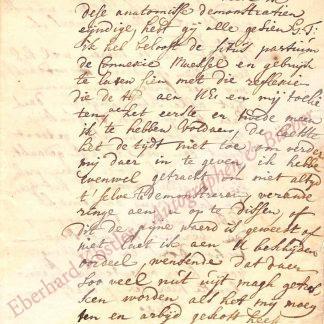 dese anatomise demonstratien
eyndige, heft gij alle gesien
ik heb belooft de situs partium
de Connexie en gebruijk
te laten sien met die reflexie
die de tijd aen UE. en mij toelie
ten, het eerste en twede meen
ik te hebben voldaen, de
het de tijdt niet toe om verder
mij daer in te geven, ik hebbe
evenwel getracht om niet altijt
t'selve te demonstreren, verande
ringe aen u op te dissen, of
dit de pijne waerd is geweest of
niet, laet ik aen u bescheijden
oordeel, wensende dat daer
soo veel nut uijt magh getrok
ken worden als het mij moeij
ten en arbijd gekost heeft
Eberhard Autographs & Books